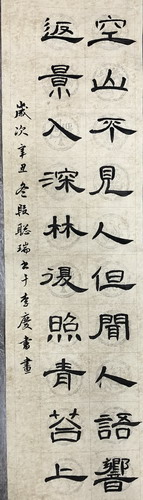 空山不見人但聞人語響
返景入深林復照青苔上
歲次辛丑冬段聪瑞书于李慶書畫